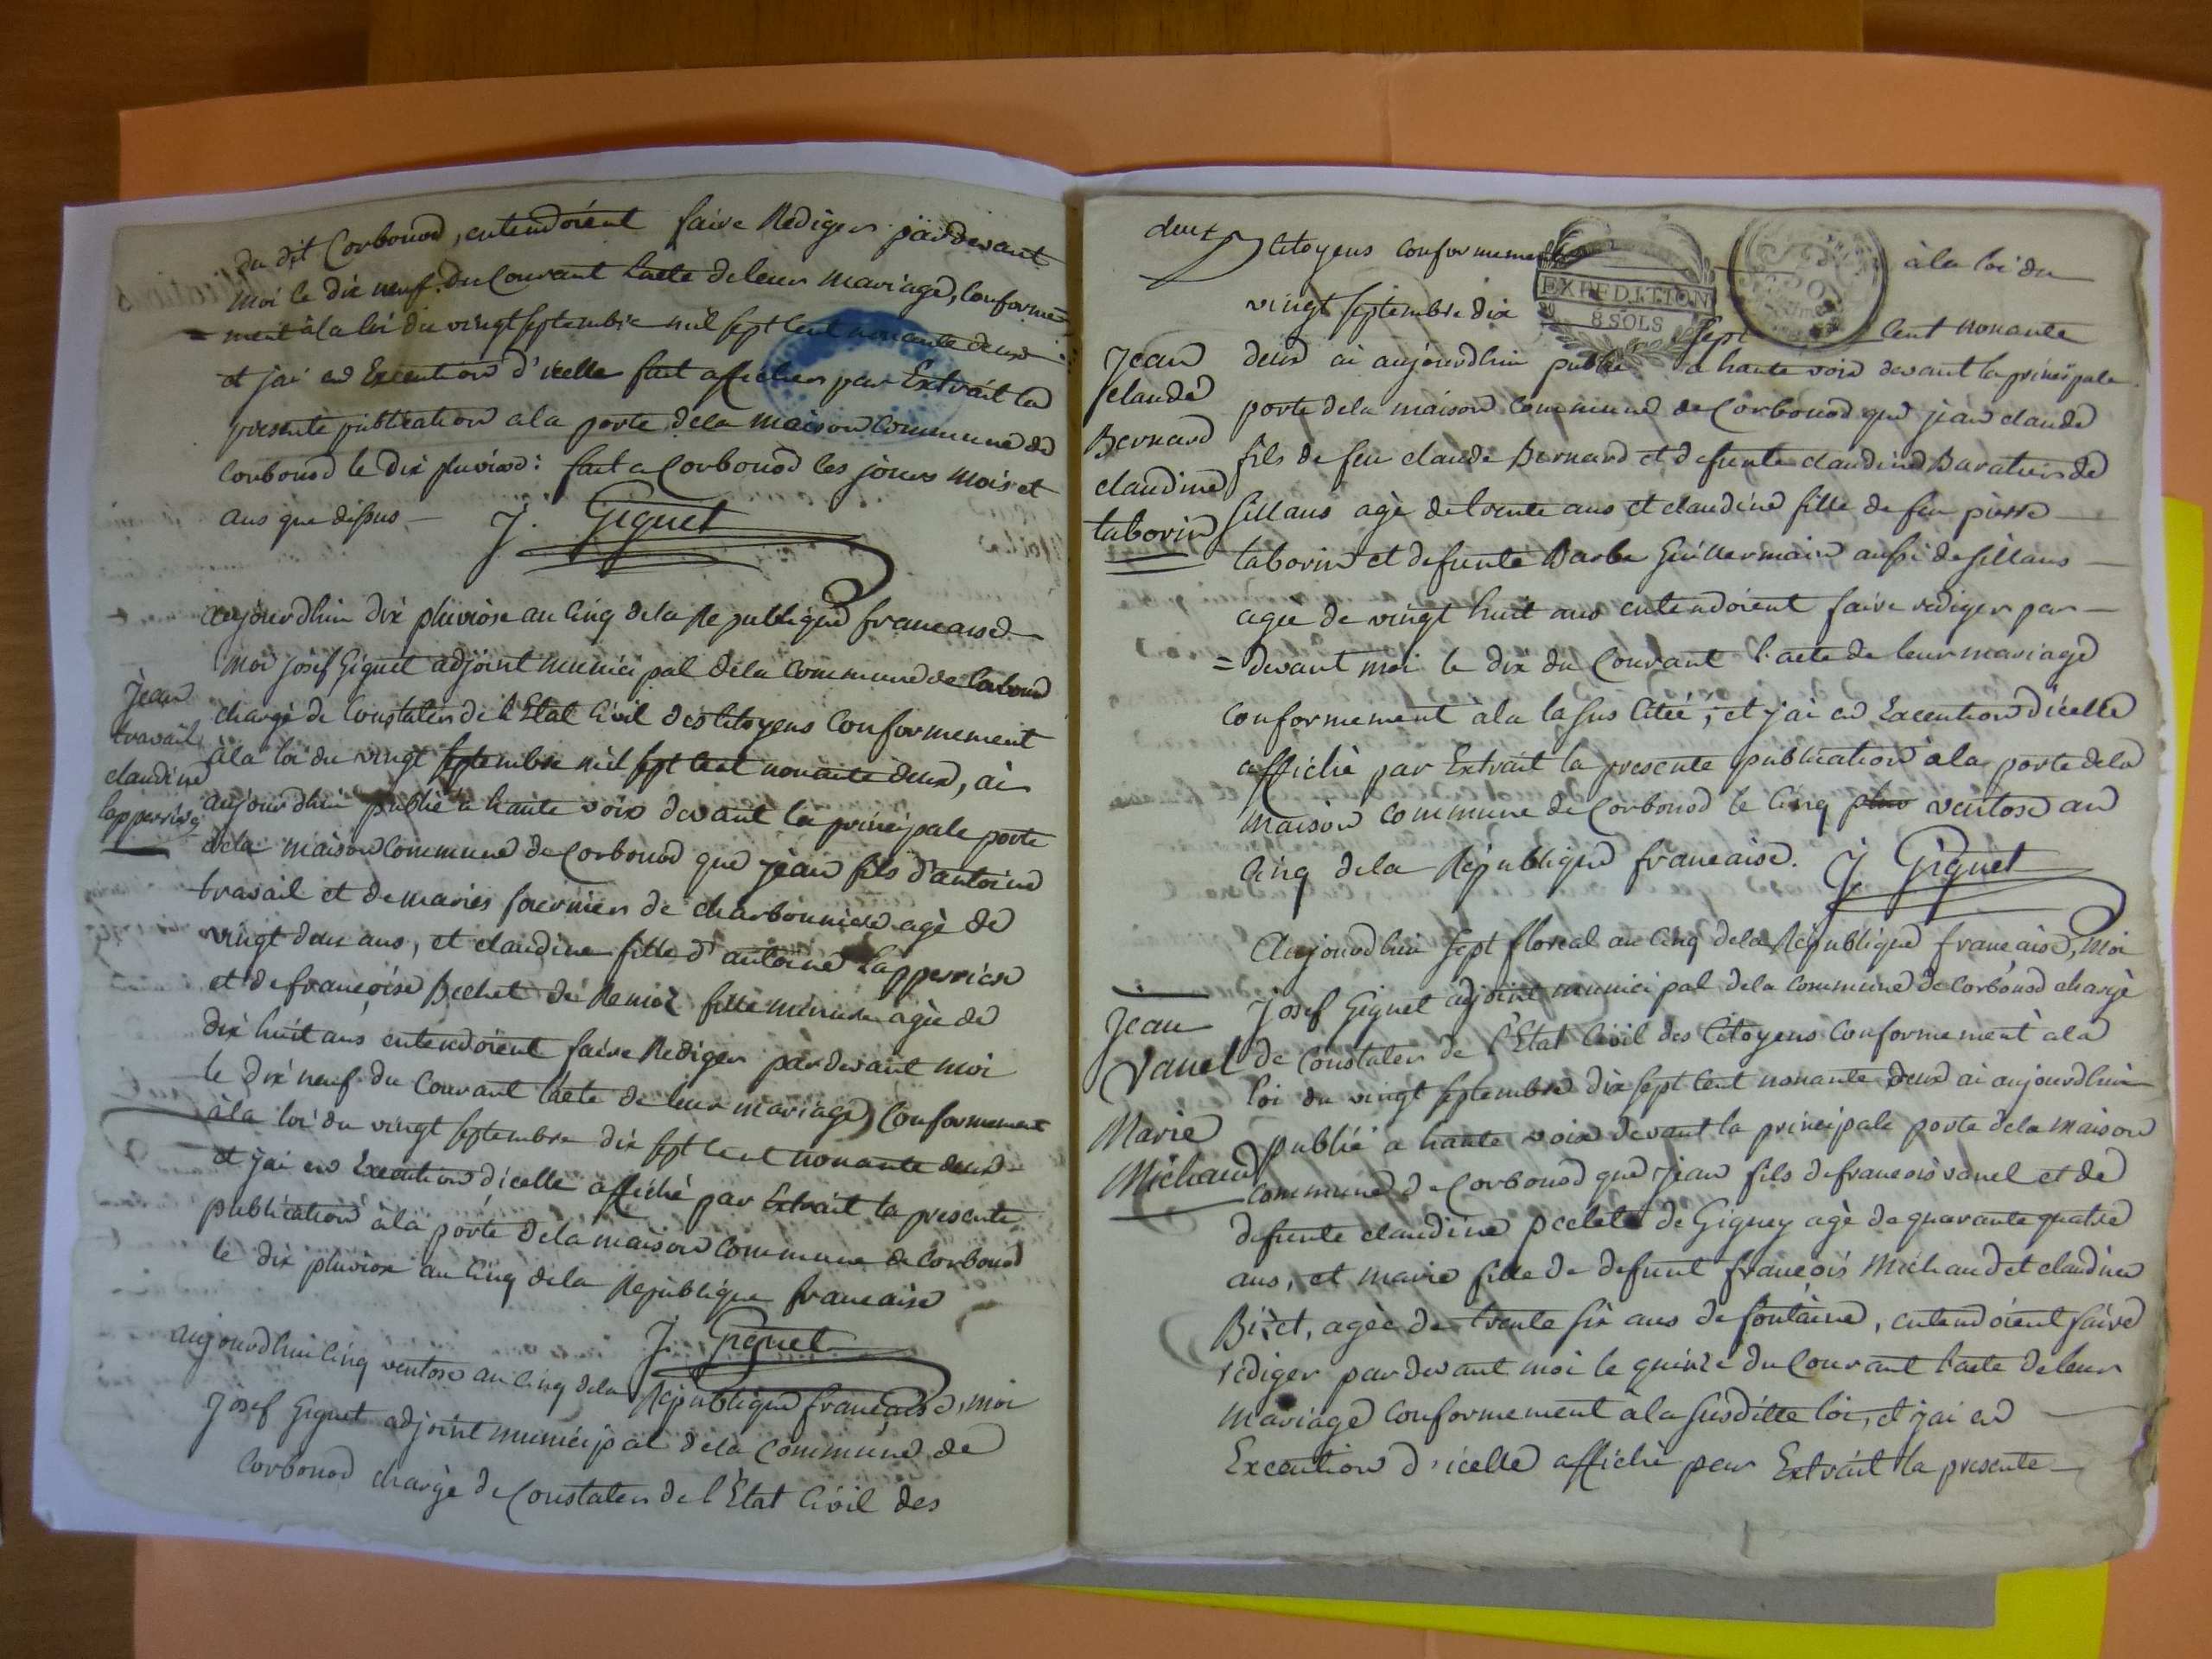 du dit Corbonod, entendoient faire Rediger pardevant
moi le dix neuf du Courant l'acte de leur mariage, Conforme=
=ment à la loi du vingt septembre mil sept cent nonante deux
et j'ai en Execution d'icelle fait afficher par Extrait la
presente publication a la porte de la maison Commune de
Corbonod le dix pluviose : fait a Corbonod les jours mois et
ans que dessus — J. Giguet
aujourdhui dix pluviose an cinq de la Republique francaise
moi josef Giguet adjoint municipal de la Commune de Corbonod
Jean
travail
claudine
lapperriere
chargé de Constater de l'Etat Civil des Citoyens Conformement
a la loi du vingt septembre mil sept cent nonante deux, ai
aujourdhui publié a haute voix devant la principale porte
de la maison Commune de Corbonod que jean fils d'antoine
travail et de marie fournier de charbonniere agé de
vingt deux ans, et claudine fille d'antoine Lapperriere
et de francoise Bechet de Remoz fille mineure agée de
dix huit ans entendoient faire Rediger pardevant moi
le dix neuf du Courant l'acte de leur mariage Conformement
à la loi du vingt septembre dix sept cent nonante deux
et j'ai en Execution d'icelle affiché par Extrait la presente
publication à la porte de la maison Commune de Corbonod
le dix pluviose an Cinq de la Republique francaise
J. Giguet
aujourdhui cinq ventose an cinq de la Republique francaise, moi
Josef Giguet adjoint municipal de la Commune de
Corbonod chargé de Constater de l'Etat Civil des
deux
Citoyens conformement à la loi du
EXPEDITION
8 SOLS
vingt septembre dix sept cent nonante
Jean
claude
Bernard
claudine
taborin
deux ai aujourdhui publié a haute voix devant la principale
porte de la maison Commune de Corbonod que jean claude
fils de feu claude Bernard et defunte claudine Baratier de
sillans agé de trente ans et claudine fille de feu pierre
taborin et defunte Barbe Guillermain aussi de sillans
agée de vingt huit ans entendoient faire rediger par
=devant moi le dix du Courant l'acte de leur mariage
Conformement à la la sus Citée, et j'ai en Execution d'icelle
affiché par Extrait la presente publication à la porte de la
maison commune de Corbonod le Cinq pluv ventose an
Cinq de la République francaise. J. Giguet
Aujourdhui sept floreal an Cinq de la République francaise, moi
Jean
Vanel
Marie
Michaud
Josef Giguet adjoint municipal de la commune de Corbonod chargé
de Constater de l'Etat Civil des Citoyens Conformement à la
loi du vingt septembre dix sept cent nonante deux ai aujourdhui
publié a haute voix devant la principale porte de la maison
Commune de Corbonod que Jean fils de francois vanel et de
defunte claudine de Gigney agé de quarante quatre
ans, et marie fille de defunt françois Michaud et claudine
Bizet, agée de trente six ans de fontaine, entendoient faire
rediger pardevant moi le quinze du Courant l'acte de leur
mariage Conformement à la susditte loi, et j'ai en
Execution d'icelle affiché par Extrait la presente